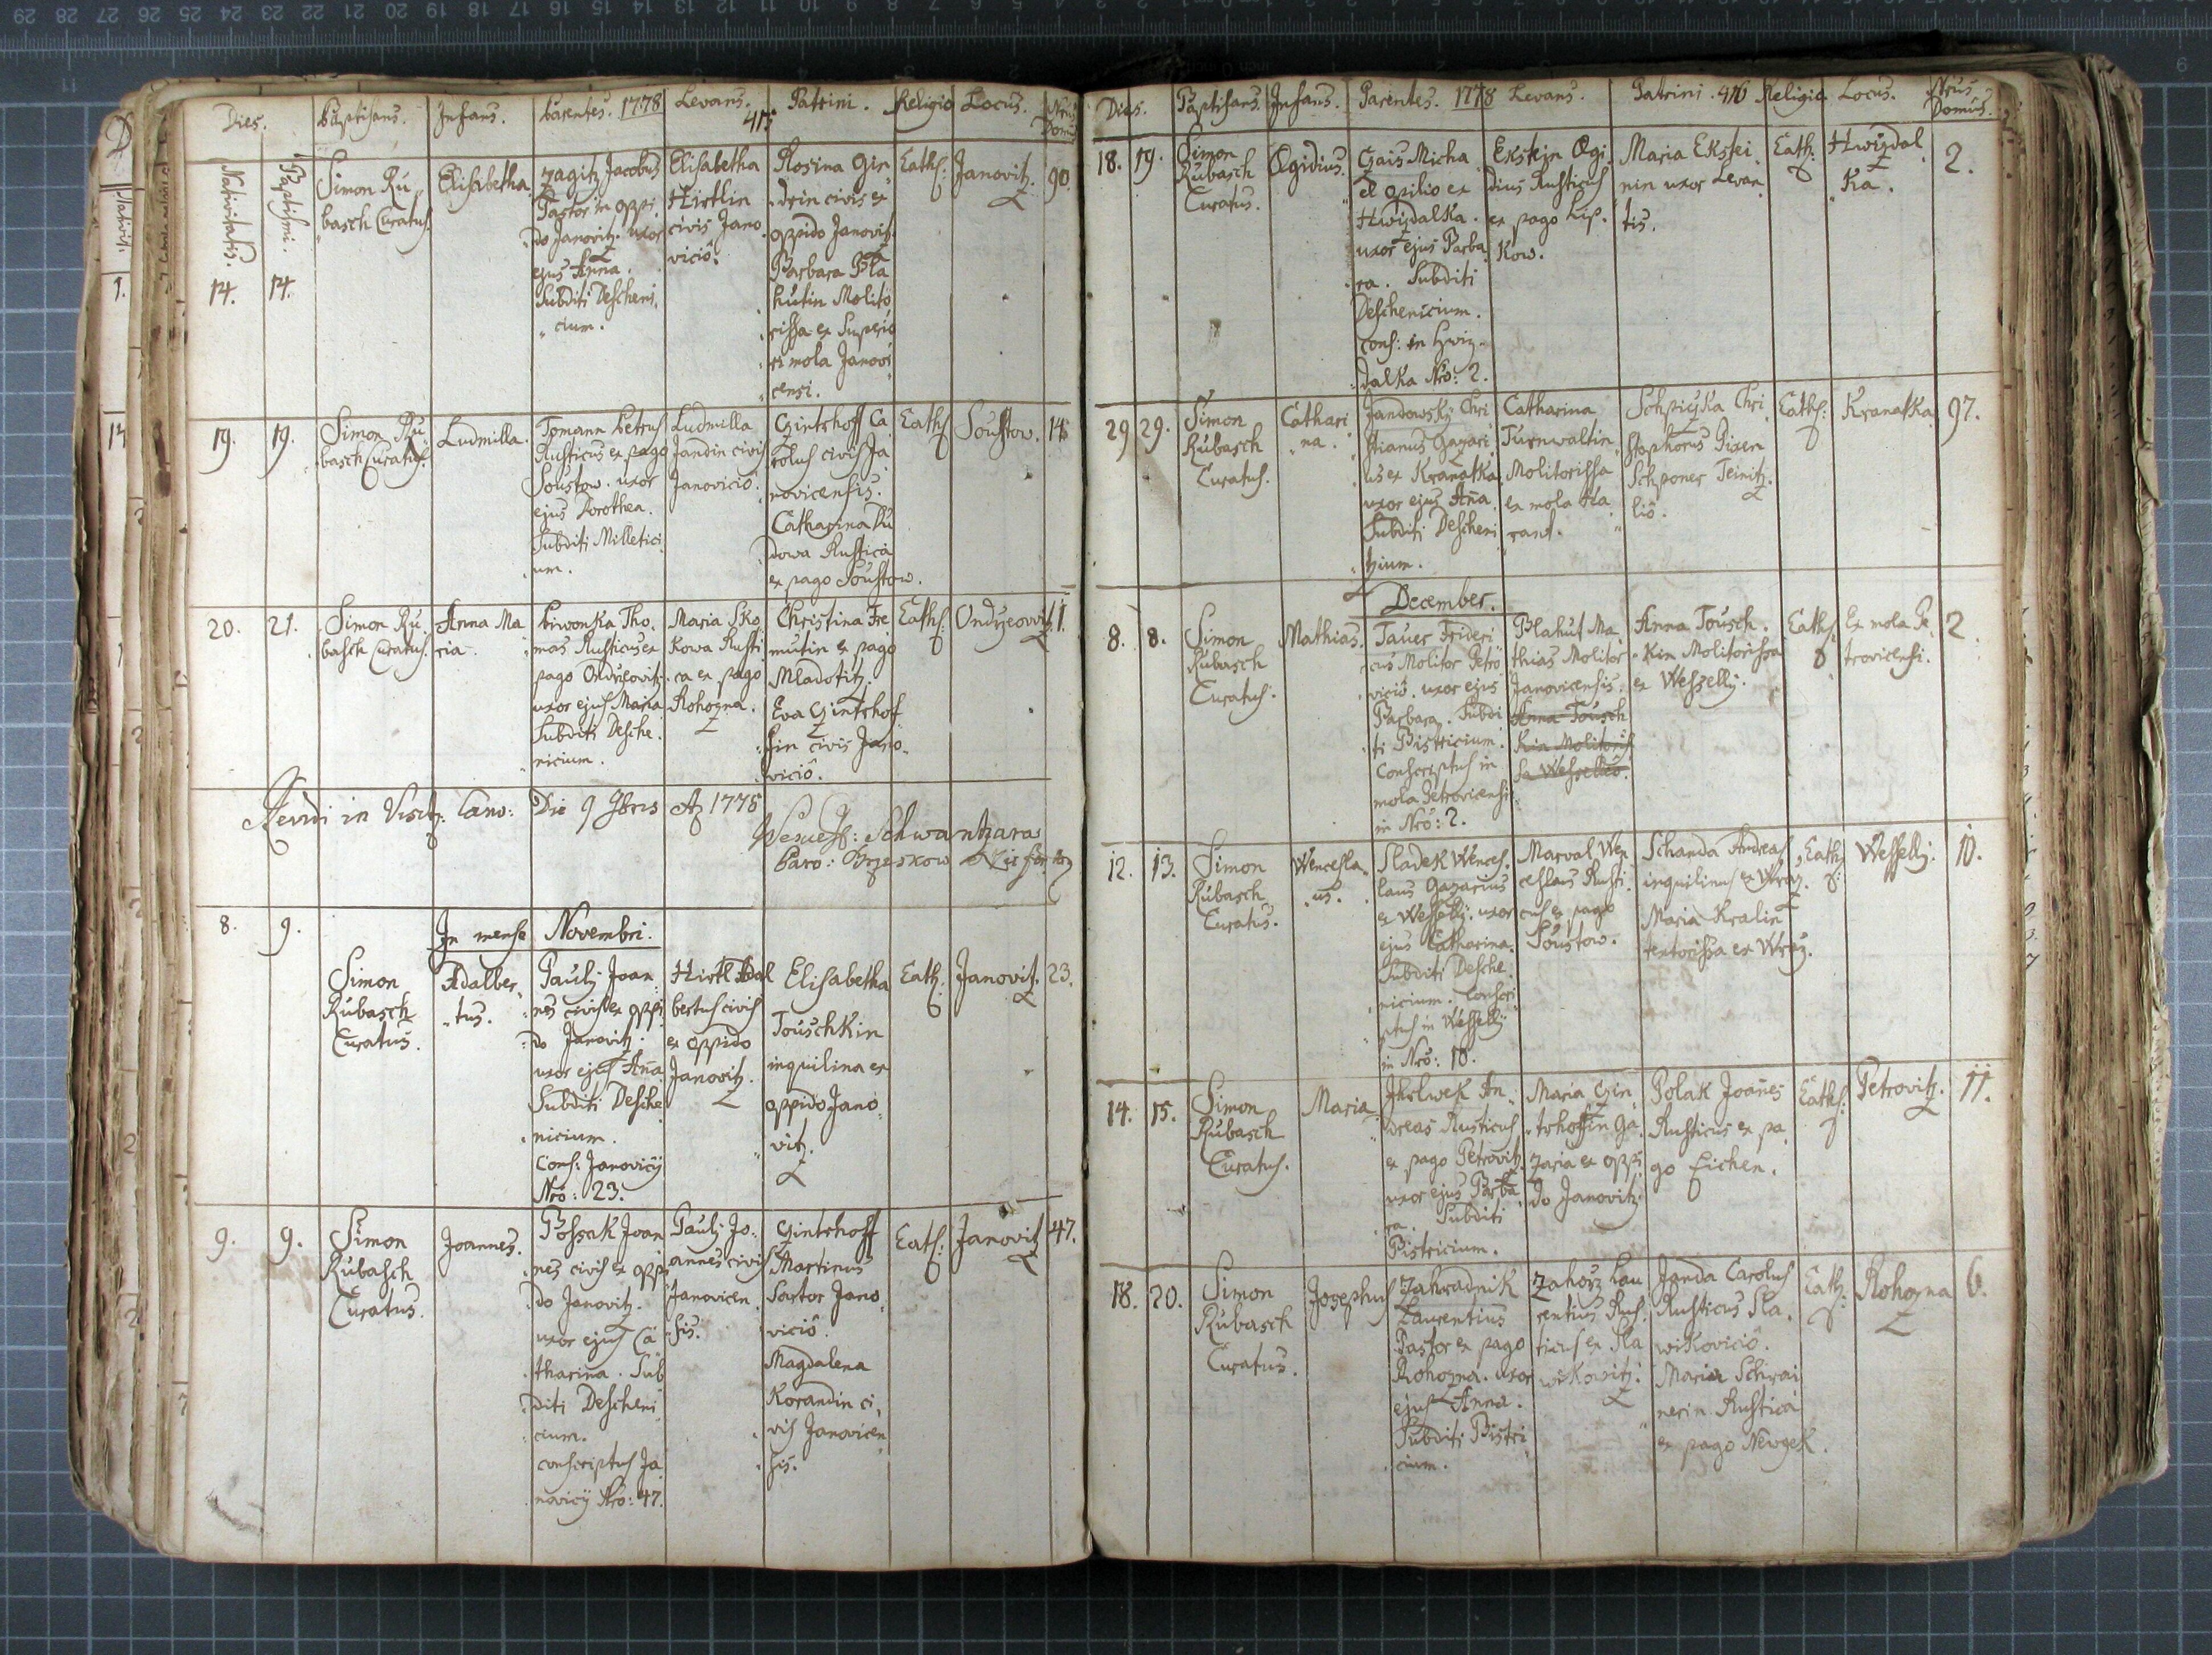 Dies. Baptisans. Infans. Parentes. 1778 Levans. 415 Patrini. Religio Locus. Nrus Domus
Nativitatis. Baptismi.
14. 14.
Simon Ru
basch Curatus.
Elisabetha
Zagitz Jacobus
Pastor in oppi
do Janovitz. uxor
ejus Anna.
Subditi Descheni
cium.
Elisabetha
Hirtlin
civis Jano
viciô.
Rosina Gin
drin civis ex
oppido Janovitz.
Barbara Bla
hutin Molito
rissa ex Superio
ri mola Janovi
censi.
Cath:
Janovitz.
90.
19. 19.
Simon Ru
basch Curatus.
Ludmilla.
Tomann Petrus
Rusticus ex pago
Soustow. uxor
ejus Dorothea.
Subditi Milletici
um.
Ludmilla
Jandin civis
Janovicio.
Gintrhoff Ca
rolus civis Ja
novicensis.
Catharina Ru
dowa Rustica
ex pago Soustow.
Cath:
Soustow.
14
20. 21.
Simon Ru
basch Curatus.
Anna Ma
ria.
Piwonka Tho
mas Rusticus ex
pago Ondrzeovitz
uxor ejus Maria
Subditi Desche
nicium.
Maria Sko
kowa Rusti
ca ex pago
Rohozna.
Christina Fre
mutin ex pago
Mladotitz.
Eva Gintrhof
fin civis Jano
viciô.
Cath:
Ondrzeovitz
1.
in Visit: Cano: Die 9 Jbris Aõ 1778
Schwantzara
8. 9.
In mense Novembri.
Simon
Rubasch
Curatus.
Adalber
tus.
Pauly Joan
nes civis ex oppi
do Janovitz.
uxor ejus Aña
Subditi Desche
nicium.
Cons: Janovicij
Nrô: 23.
Hirtl Adal
bertus civis
ex oppido
Janovitz.
Elisabetha
Touschkin
inquilina ex
oppido Jano
vitz.
Cath:
Janovitz.
23.
9. 9.
Simon
Rubasch
Curatus.
Joannes.
Bossak Joan
nes civis ex oppi
do Janovitz.
uxor ejus Ca
tharina. Sub
diti Descheni
cium.
conscriptus Ja
novicij Nrô: 47.
Pauly Jo
annes civis
Janovicen
sis.
Gintrhoff
Martinus
Sartor Jano
viciô.
Magdalena
Korandin ci
vis Janovicen
sis.
Cath:
Janovitz
47.
Dies. Baptisans. Infans. Parentes. 1778 Levans. Patrini. 416 Religio Locus. Nrus Domus.
18. 19.
Simon
Rubasch
Curatus.
Ægidius.
Gais Micha
el opilio ex
Hwizdalka.
uxor ejus Barba
ra. Subditi
Deschenicium.
cons: in Hwiz
dalka Nrô: 2.
Eksstejn Ægi
dius Rusticus
ex pago Lip
kow.
Maria Ekstei
nin uxor Levan
tis.
Cath:
Hwizdal
ka.
2.
29 29.
Simon
Rubasch
Curatus.
Cathari
na.
Jandowsky Chri
stianus Gazari
us ex Kranatka
uxor ejus Aña
Subditi Descheni
tzium.
Catharina
Turnwaltin
Molitorissa
ex mola
Schpizka Chri
stophorus
Teinitz.
Cath:
Kranatka
97.
December.
8. 8.
Simon
Rubasch
Curatus.
Mathias.
Tauer Frideri
cus Molitor Petro
viciô. uxor ejus
Barbara. Subdi
ti Bistricium.
Conscriptus in
mola Petrovicensi
in Nrô: 2.
Blahut Ma
thias Molitor
Janovicensis.
Anna Tousch
kin Molitoris
sa Wesselico.
Anna Tousch
kin Molitorissa
ex Wesselly.
Cath:
Ex mola Pe
trovicensi.
2.
12. 13.
Simon
Rubasch
Curatus.
Wencesla
us.
Sladek Wences
laus Gazarius
ex Wesselly. uxor
ejus Catharina.
Subditi Desche
nicium. conscri
ptus in Wesselly
in Nrô: 10.
Marval Wen
ceslaus Rusti
cus ex pago
Soustow.
Schanda Andreas
inquilinus ex Wraz.
Maria Kralin
textorissa ex Wraz.
Cath:
Wesselly.
10.
14. 15.
Simon
Rubasch
Curatus.
Maria
An
dreas Rusticus
ex pago Petrovitz
uxor ejus Barba
ra. Subditi
Bistricium.
Maria Gin
trhoffin Ga
zaria ex oppi
do Janovitz
Polak Joañes
Rusticus ex pa
go Eichen.
Cath:
Petrovitz.
11.
18. 20.
Simon
Rubasch
Curatus.
Josephus
Zahradnik
Laurentius
Pastor ex pago
Rohozna. uxor
ejus Anna.
Subditi Bistri
cium.
Zahorz Lau
rentius Rus
ticus ex Sla
wikovitz.
Janda Carolus
Rusticus Sla
wikoviciô.
Maria Schwai
nerin Rustica
ex pago Newgek.
Cath:
Rohozna
6.